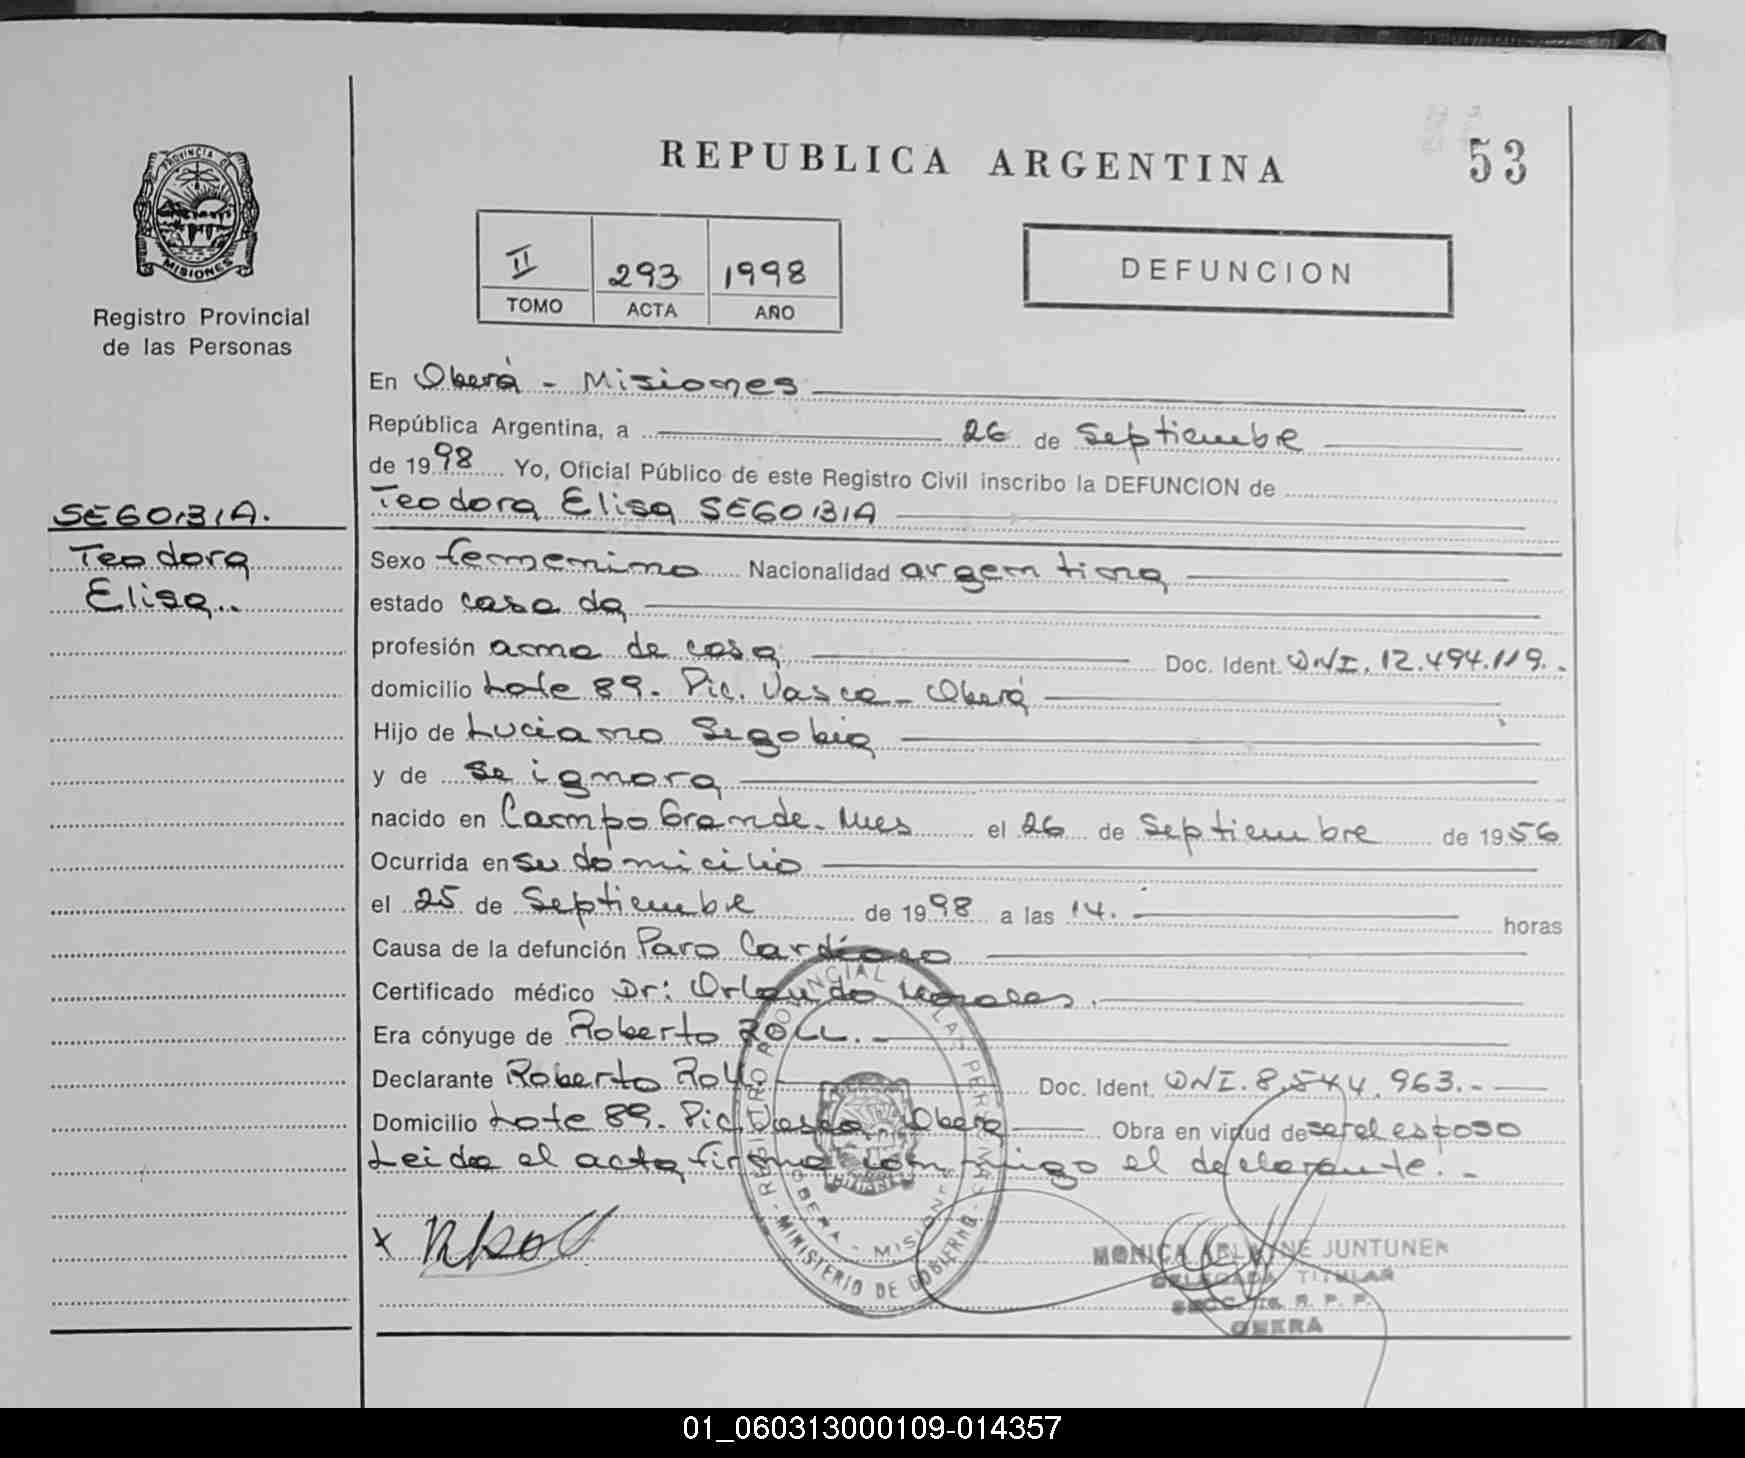 REPUBLICA ARGENTINA
53
PROVINCIA DE
MISIONES
Registro Provincial
de las Personas
II 293 1998
TOMO ACTA AÑO
DEFUNCION
En Oberá - Misiones
República Argentina, a 26 de Septiembre
de 1998 Yo, Oficial Público de este Registro Civil inscribo la DEFUNCION de
SEGOBIA.
Teodora Elisa SEGOBIA
Teodora
Elisa..
Sexo femenino Nacionalidad argentina
estado casada
profesión ama de casa Doc. Ident. DNI. 12.494.119.
domicilio Lote 89. Pic. Vasca - Oberá
Hijo de Luciano Segobia
y de se ignora
nacido en Campo Grande. Mnes el 26 de Septiembre de 1956
Ocurrida en su domicilio
el 25 de Septiembre de 1998 a las 14. horas
Causa de la defunción Paro Cardíaco
Certificado médico Dr: Orlando Morales.
Era cónyuge de Roberto ROLL. -
Declarante Roberto Roll. Doc. Ident. DNI. 8.544.963. -
Domicilio Lote 89. Pic. Vasca Oberá Obra en virtud de ser el esposo
Leida el acta firma conmigo el declarante. -
REGISTRO PROVINCIAL DE LAS PERSONAS
MINISTERIO DE GOBIERNO
OBERA - MISIONES
MISIONES
x
MONICA JUNTUNEN
DELEGADA TITULAR
R. P. P.
OBERA
01_060313000109-014357